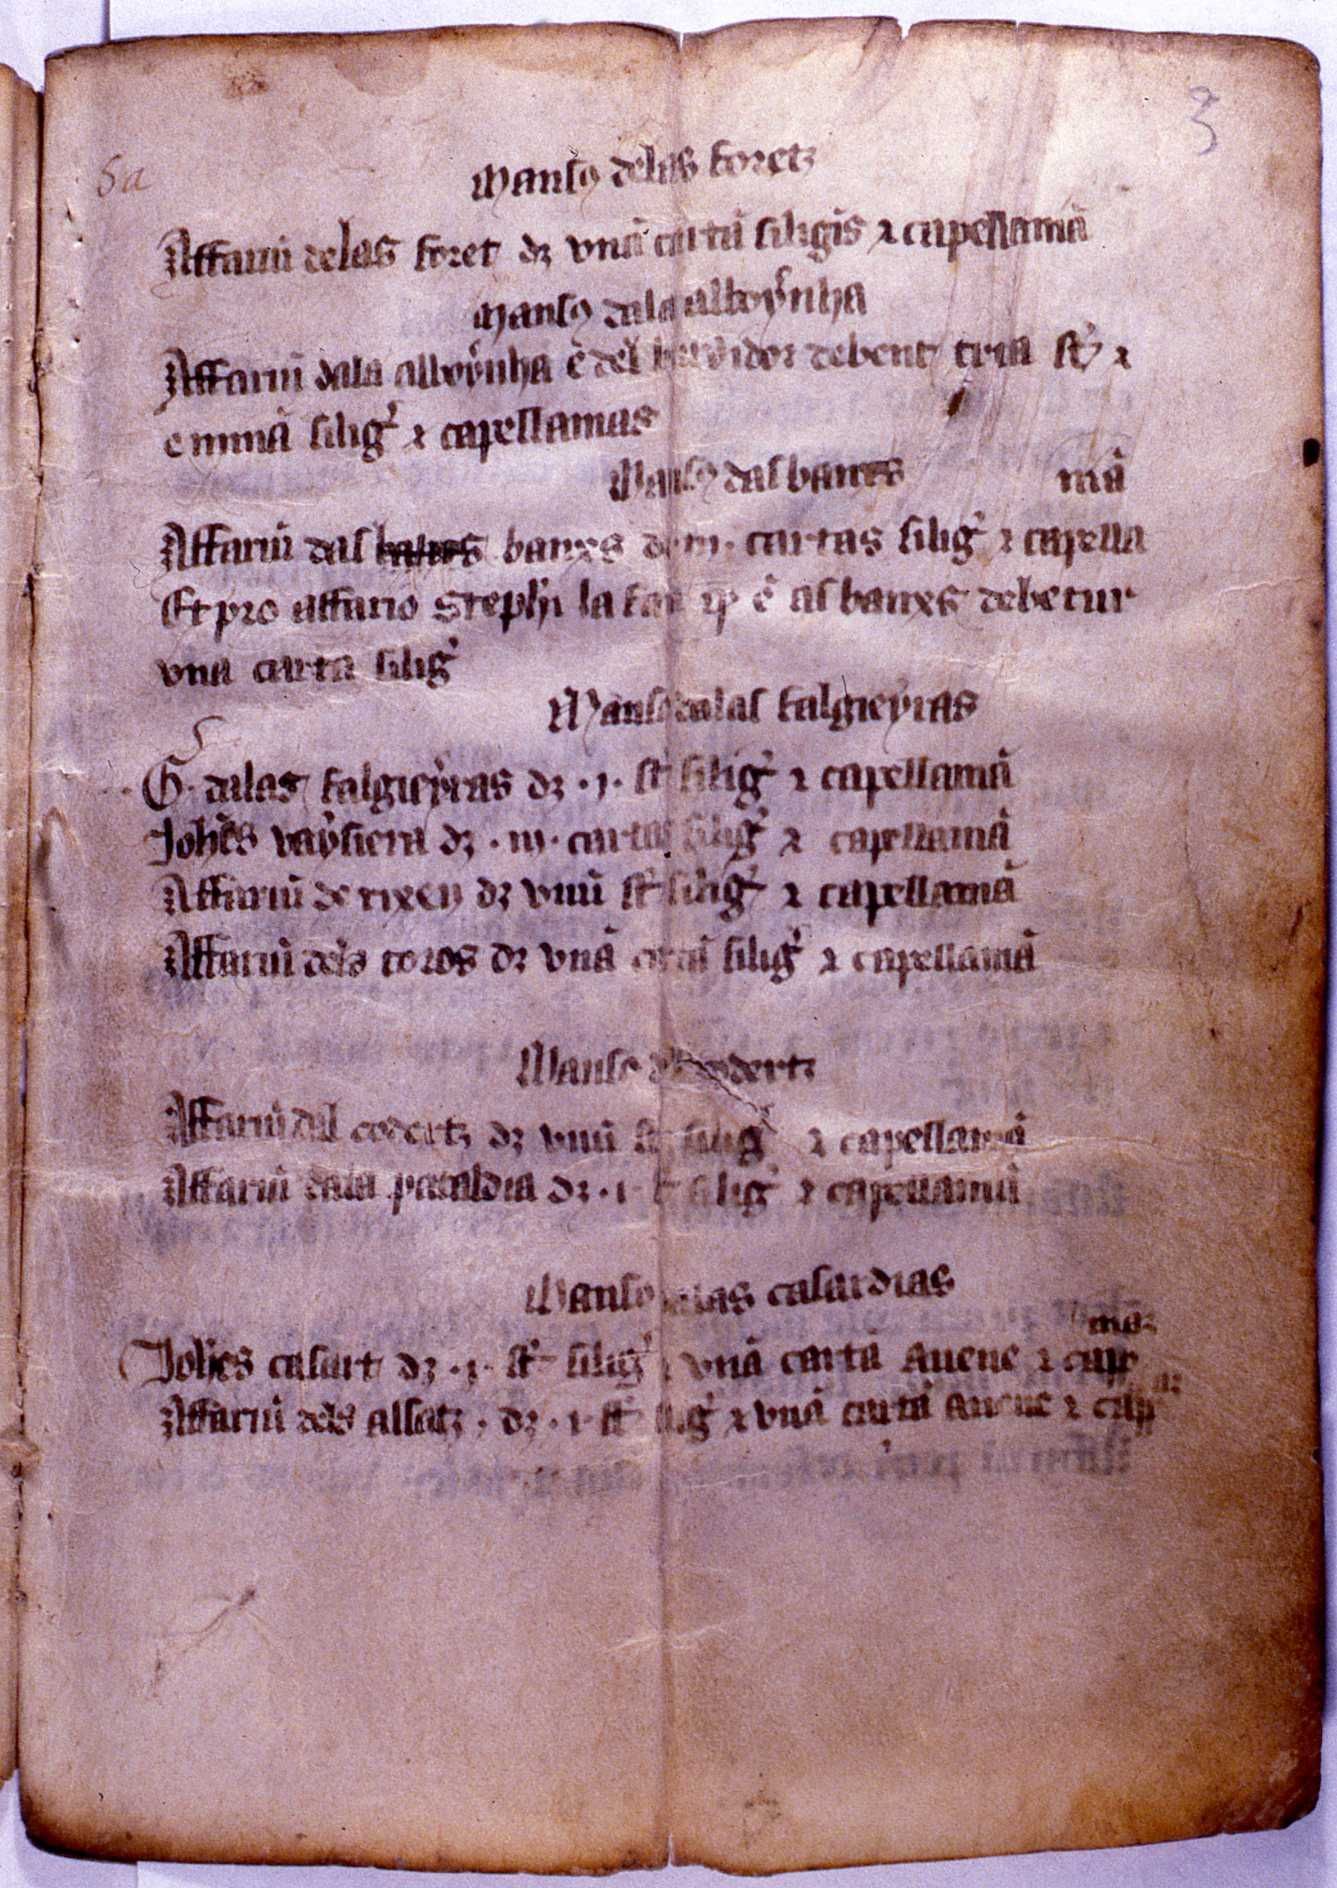 3
5a
Mansꝰ delas foretz
Affariũ delas foret dz vnã cartã siligis ⁊ capellaniã
Mansꝰ dala alboynha
Affariũ dala alboynha ⁊ del debent tria st' ⁊
eminã silig' ⁊ capellanias
Mansꝰ dal banxs
niã
Affariũ dal banxs banxs dz .iii. cartas silig' ⁊ capella
Et pro affario Steph'i la al banxs debetur
vna carta silig'
Mansꝰ dalas falgieyras
G. dalas falgieyras dz .i. st' silig' ⁊ capellaniã
Joh̃es vaysiera dz .iii. cartas silig' ⁊ capellaniã
Affariũ de rixen dz vnũ st' silig' ⁊ capellaniã
Affariũ dels toros dz vnã cartã silig' ⁊ capellaniã
Mansꝰ codertz
Affariũ dal codertz dz vnũ st' silig' ⁊ capellaniã
Affariũ dala dz .i. st' silig' ⁊ capellaniã
Mansꝰ dalas casardias
Joh̃es casart dz .i. st' silig' ⁊ vnã cartã auene ⁊ cap
Affariũ dels alsatz dz .i. st' silig' ⁊ vnã cartã auene ⁊ cap